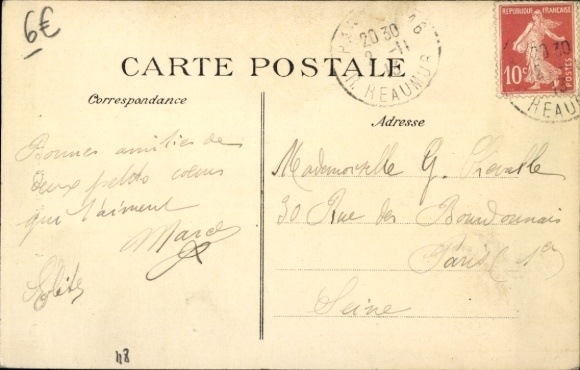 6€
REPUBLIQUE FRANÇAISE
10c
POSTES
PARIS
20 30
REAUMUR
20 30
REAUMUR
CARTE POSTALE
Correspondance
Adresse
Bonnes amitiés de
deux petits coeurs
qui t'aiment
Marcel
Mademoiselle G.
30 Rue des Bourdonnais
Paris 1er
Seine
48